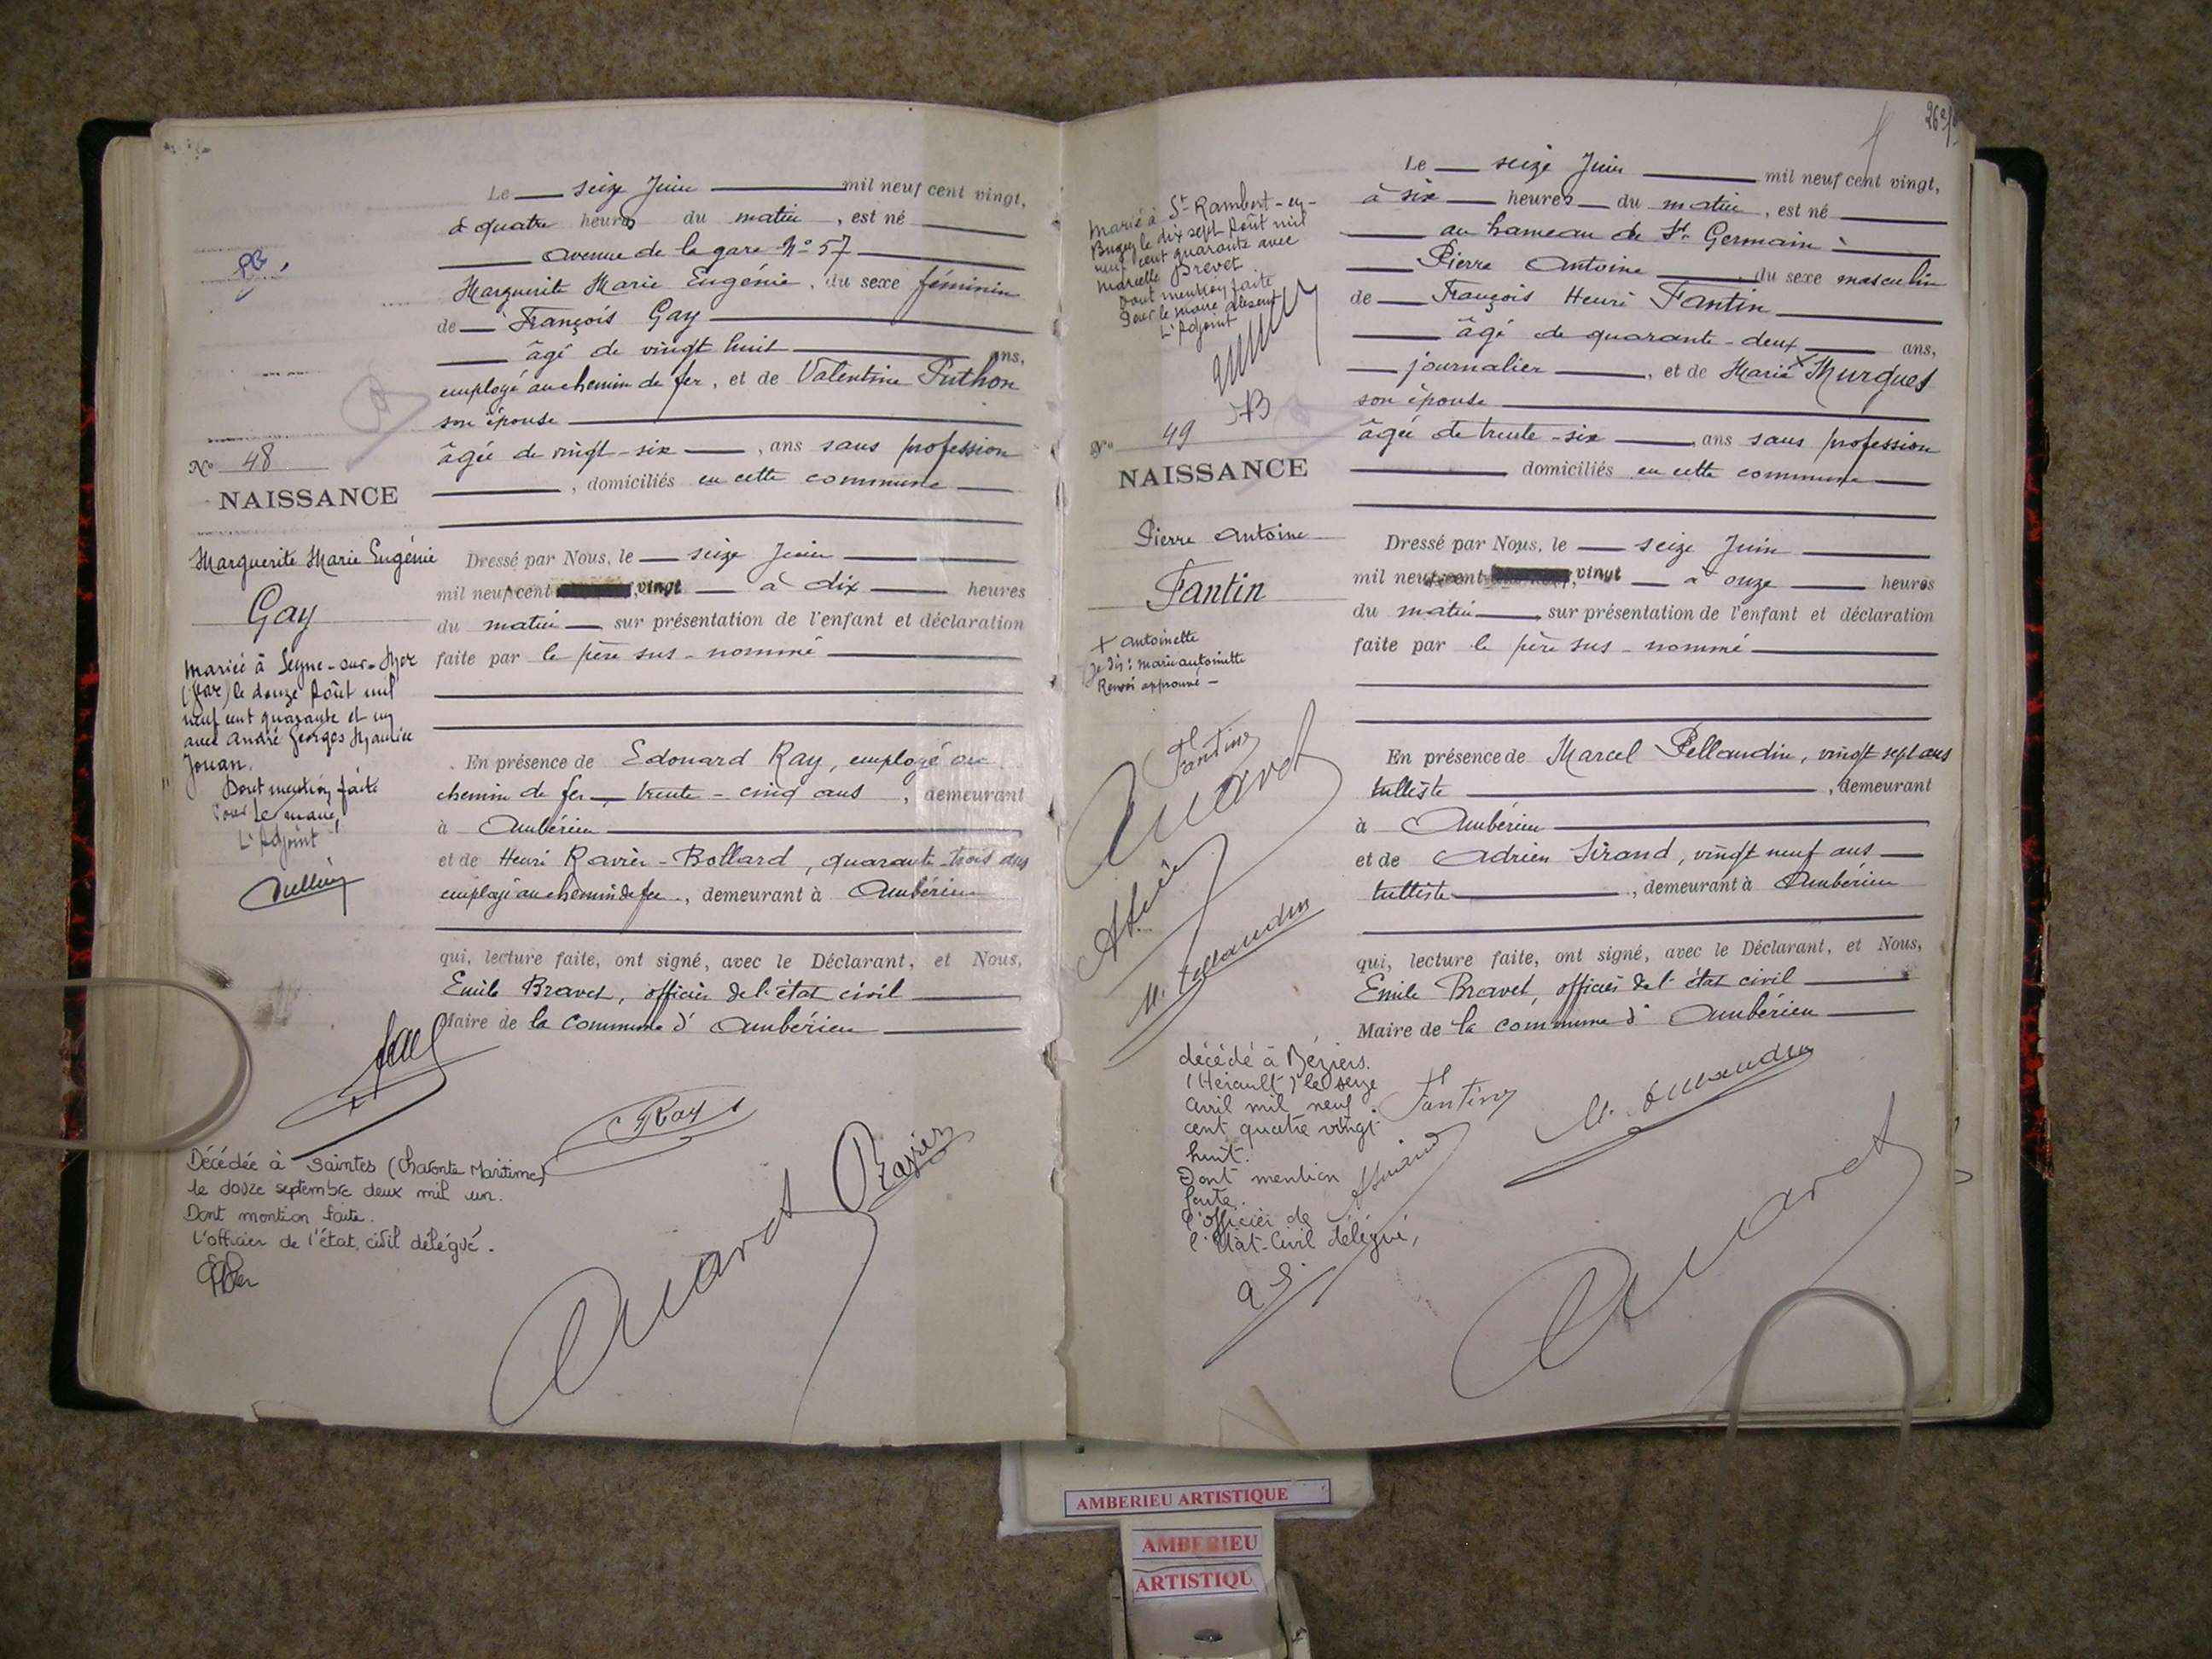 Le — seize Juin — mil neuf cent vingt,
à quatre heures du matin, est né
avenue de la gare N° 57
Marguerite Marie Eugénie, du sexe féminin
de — François Gay
âgé de vingt huit ans,
employé au chemin de fer, et de Valentine Puthon
son épouse
âgée de vingt-six —, ans sans profession
, domiciliés en cette commune
N° 48
NAISSANCE
Marguerite Marie Eugénie
Gay
Mariée à Seyne-sur-Mer
(Var) le douze Août mil
neuf cent quarante et un
avec André Georges Maurice
Jouan.
Dont mention faite
Pour Le maire,
L'Adjoint
Dressé par Nous, le — seize Juin
mil neuf cent vingt — à dix — heures
du matin — sur présentation de l'enfant et déclaration
faite par le père sus-nommé
En présence de Edouard Ray, employé au
chemin de fer — trente-cinq ans, demeurant
à Ambérieu
et de Henri Ravier-Bollard, quarante trois ans
employé au chemin de fer, demeurant à Ambérieu
qui, lecture faite, ont signé, avec le Déclarant, et Nous,
Emile Bravet, officier de l'état civil
Maire de la commune d'Ambérieu
Ray
Ravier
Décédée à Saintes (Charente Maritime)
le douze septembre deux mil un.
Dont mention faite.
L'officier de l'état civil délégué.
Le — seize Juin — mil neuf cent vingt,
à six — heures — du matin, est né
au hameau de St Germain
Pierre Antoine — du sexe masculin
de — François Henri Fantin
âgé de quarante-deux — ans,
journalier —, et de Marie × Murgues
son épouse
âgée de trente-six —, ans sans profession
domiciliés en cette commune
Marié à St Rambert-en-
Bugey le dix sept Août mil
neuf cent quarante avec
Marcelle Brevet
Dont mention faite
Pour le maire absent
L'Adjoint
N° 49
NAISSANCE
Pierre Antoine
Fantin
+ antoinette
je dis : marie antoinette
Renvoi approuvé —
Fantin
Dressé par Nous, le — seize Juin
mil neuf cent vingt — à onze — heures
du matin — sur présentation de l'enfant et déclaration
faite par le père sus-nommé
En présence de Marcel Pellaudin, vingt sept ans
tulliste —, demeurant
à Ambérieu
et de Adrien Sirand, vingt neuf ans
tulliste —, demeurant à Ambérieu
qui, lecture faite, ont signé, avec le Déclarant, et Nous,
Emile Bravet, officier de l'état civil
Maire de la commune d'Ambérieu
décédé à Béziers.
(Hérault) le seize
avril mil neuf
cent quatre vingt
huit.
Dont mention
faite.
l'officier de
l'Etat-Civil délégué,
Fantin
AMBERIEU ARTISTIQUE
AMBERIEU
ARTISTIQU